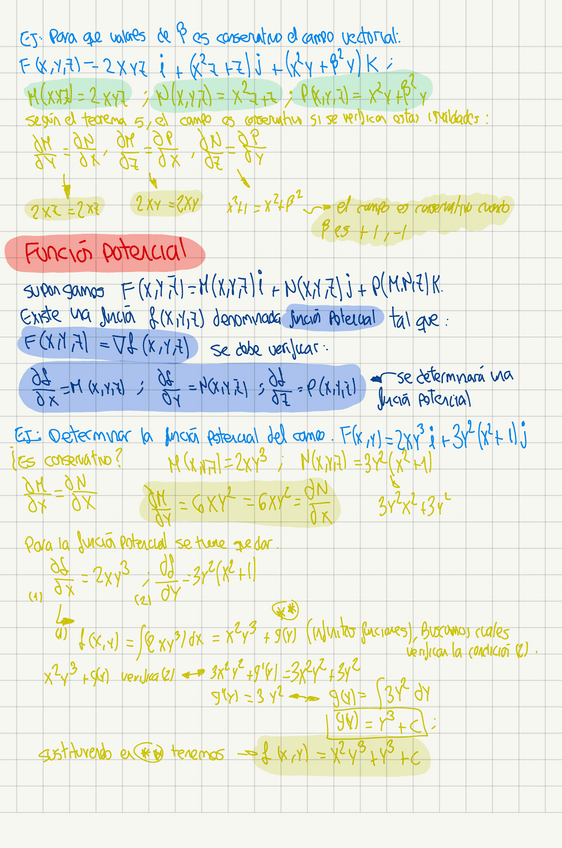 Ej: Para que valores de β es conservativo el campo vectorial:
F(x,y,z) = 2xyz i + (x²z + z) j + (x²y + β²y) K ;
M(x,y,z) = 2xyz ; N(x,y,z) = x²z+z ; P(x,y,z) = x²y+β²y
según el teorema 5, el campo es conservativo si se verifican estas igualdades:
∂M/∂y = ∂N/∂x, ∂M/∂z = ∂P/∂x, ∂N/∂z = ∂P/∂y
2xz = 2xz 2xy = 2xy x²+1 = x²+β² → el campo es conservativo cuando
β es +1, -1
Función potencial
supongamos F(x,y,z) = M(x,y,z) i + N(x,y,z) j + P(M,N,z) K.
Existe una función f(x,y,z) denominada función potencial tal que:
F(x,y,z) = ∇f(x,y,z) se debe verificar:
∂f/∂x = M(x,y,z) ; ∂f/∂y = N(x,y,z) ; ∂f/∂z = P(x,y,z) ← se determinará una
función potencial
Ej: Determinar la función potencial del campo. F(x,y) = 2xy³ i + 3y²(x²+1) j
¿Es conservativo? M(x,y,z) = 2xy³ ; N(x,y,z) = 3y²(x²+1)
∂M/∂x = ∂N/∂x ∂M/∂y = 6xy² = 6xy² = ∂N/∂x 3y²x²+3y²
Para la función potencial se tiene que dar.
(1) ∂f/∂x = 2xy³ ; (2) ∂f/∂y = 3y²(x²+1)
(**)
(1) f(x,y) = ∫(2xy³)dx = x²y³ + g(y) (infinitas funciones), Buscamos cuales
verifican la condición (2).
x²y³ + g(y) verifica (2) ↔ 3x²y² + g'(y) = 3x²y² + 3y²
g'(y) = 3y² ↔ g(y) = ∫3y² dy
g(y) = y³ + C ;
sustituyendo en (**) tenemos → f(x,y) = x²y³ + y³ + C